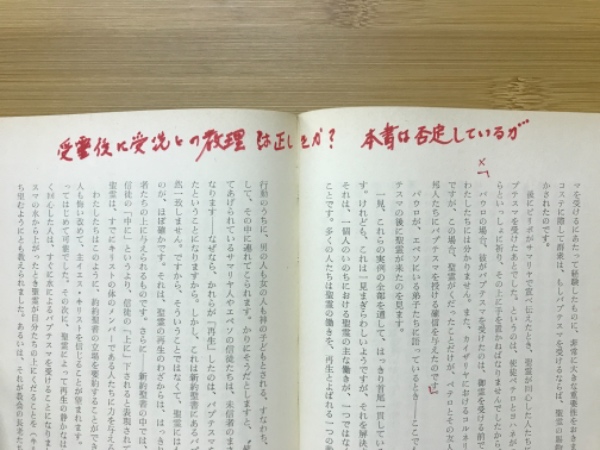 受霊後に受洗との教理は正しきか? 本書は否定しているが
マを受けるにあたって経験したものに、非常に大きな重要性をおきま
コステに際して群衆は、もしバプテスマを受けるならば、聖霊の賜物
かされたのです。
後にピリポがサマリヤで宣べ伝えたとき、聖霊が回心した人たちに
プテスマを受けたあとでした。というのは、使徒ペテロとヨハネが
らといっしょに祈り、その上に手を置かねばなりませんでしたから。
パウロの場合、彼がバプテスマを受けたのは、御霊を受ける前で
わたしたちには分かりません。また、カイザリヤにおけるコルネリ
ですが、この場合、聖霊がくだったことだけが、ペテロとその友人
邦人たちにバプテスマを授ける確信を与えたのです。
パウロが、エペソにいる弟子たちに語っているとき――ここで
テスマの後に聖霊が来たのを見ます。
一見、これらの実例の全部を通して、はっきり首尾一貫してい
す。けれども、これは一見まぎらわしいようですが、それを解決
それは、一個人のいのちにおける聖霊の主な働きが、一つではな
ことです。多くの人たちは聖霊の働きを、再生とよばれる一つの働
行動のうちに、男の人も女の人も神の子どもとされる、すなわち、
して、その中に連れてこられます。かりにそうだとしますと、
てあげられているサマリヤ人やエペソの信徒たちは、未信者のまま
なります――なぜなら、かれらが『再生』したのは、バプテスマ
たということになりますから。しかし、これは新約聖書にあるバプ
郎一致しません。ですから、そういうことではなくて、聖霊は
のは、ほぼ確かです。それは、聖霊の再生のわざからは、はっき
者たちの上に与えられるものです。さらに――新約聖書の中では、
信徒の「中に」というより、信徒の「上に」下されると表現されて
聖霊は、すでにキリストの体のメンバーである人たちに力を与える
わたしたちはこのように、新約聖書の立場を要約することができ
人も悔い改めて、主イエス・キリストを信じることが望まれます。
ってはじめて可能でした。その次に、聖霊によって再生の静かな
く回心した人は、すぐに水によるバプテスマを受けることになりま
スマの水から上がったとき聖霊が自分たちの上にくだることを(キ
ち望むようにとも教えられました。あるいは、それが教会の長老た